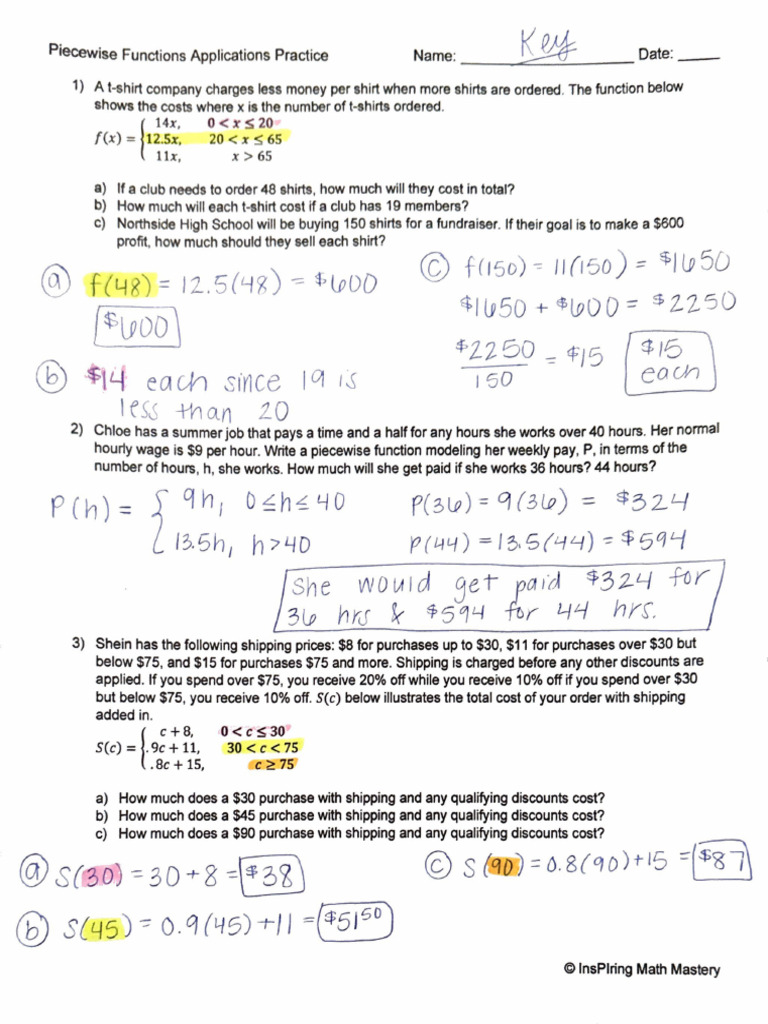 Piecewise Functions Applications Practice Name: Key Date: ____
1) A t-shirt company charges less money per shirt when more shirts are ordered. The function below
shows the costs where x is the number of t-shirts ordered.
14x, 0 < x ≤ 20
f(x) = { 12.5x, 20 < x ≤ 65
11x, x > 65
a) If a club needs to order 48 shirts, how much will they cost in total?
b) How much will each t-shirt cost if a club has 19 members?
c) Northside High School will be buying 150 shirts for a fundraiser. If their goal is to make a $600
profit, how much should they sell each shirt?
ⓐ f(48) = 12.5(48) = $600
$600
ⓑ $14 each since 19 is
less than 20
ⓒ f(150) = 11(150) = $1650
$1650 + $600 = $2250
$2250/150 = $15
$15
each
2) Chloe has a summer job that pays a time and a half for any hours she works over 40 hours. Her normal
hourly wage is $9 per hour. Write a piecewise function modeling her weekly pay, P, in terms of the
number of hours, h, she works. How much will she get paid if she works 36 hours? 44 hours?
P(h) = { 9h, 0≤h≤40
13.5h, h>40
P(36) = 9(36) = $324
P(44) = 13.5(44) = $594
She would get paid $324 for
36 hrs & $594 for 44 hrs.
3) Shein has the following shipping prices: $8 for purchases up to $30, $11 for purchases over $30 but
below $75, and $15 for purchases $75 and more. Shipping is charged before any other discounts are
applied. If you spend over $75, you receive 20% off while you receive 10% off if you spend over $30
but below $75, you receive 10% off. S(c) below illustrates the total cost of your order with shipping
added in.
c + 8, 0 < c ≤ 30
S(c) = { .9c + 11, 30 < c < 75
.8c + 15, c ≥ 75
a) How much does a $30 purchase with shipping and any qualifying discounts cost?
b) How much does a $45 purchase with shipping and any qualifying discounts cost?
c) How much does a $90 purchase with shipping and any qualifying discounts cost?
ⓐ S(30) = 30 + 8 = $38
ⓒ S(90) = 0.8(90) + 15 = $87
ⓑ S(45) = 0.9(45) + 11 = $51⁵⁰
© InsPIring Math Mastery